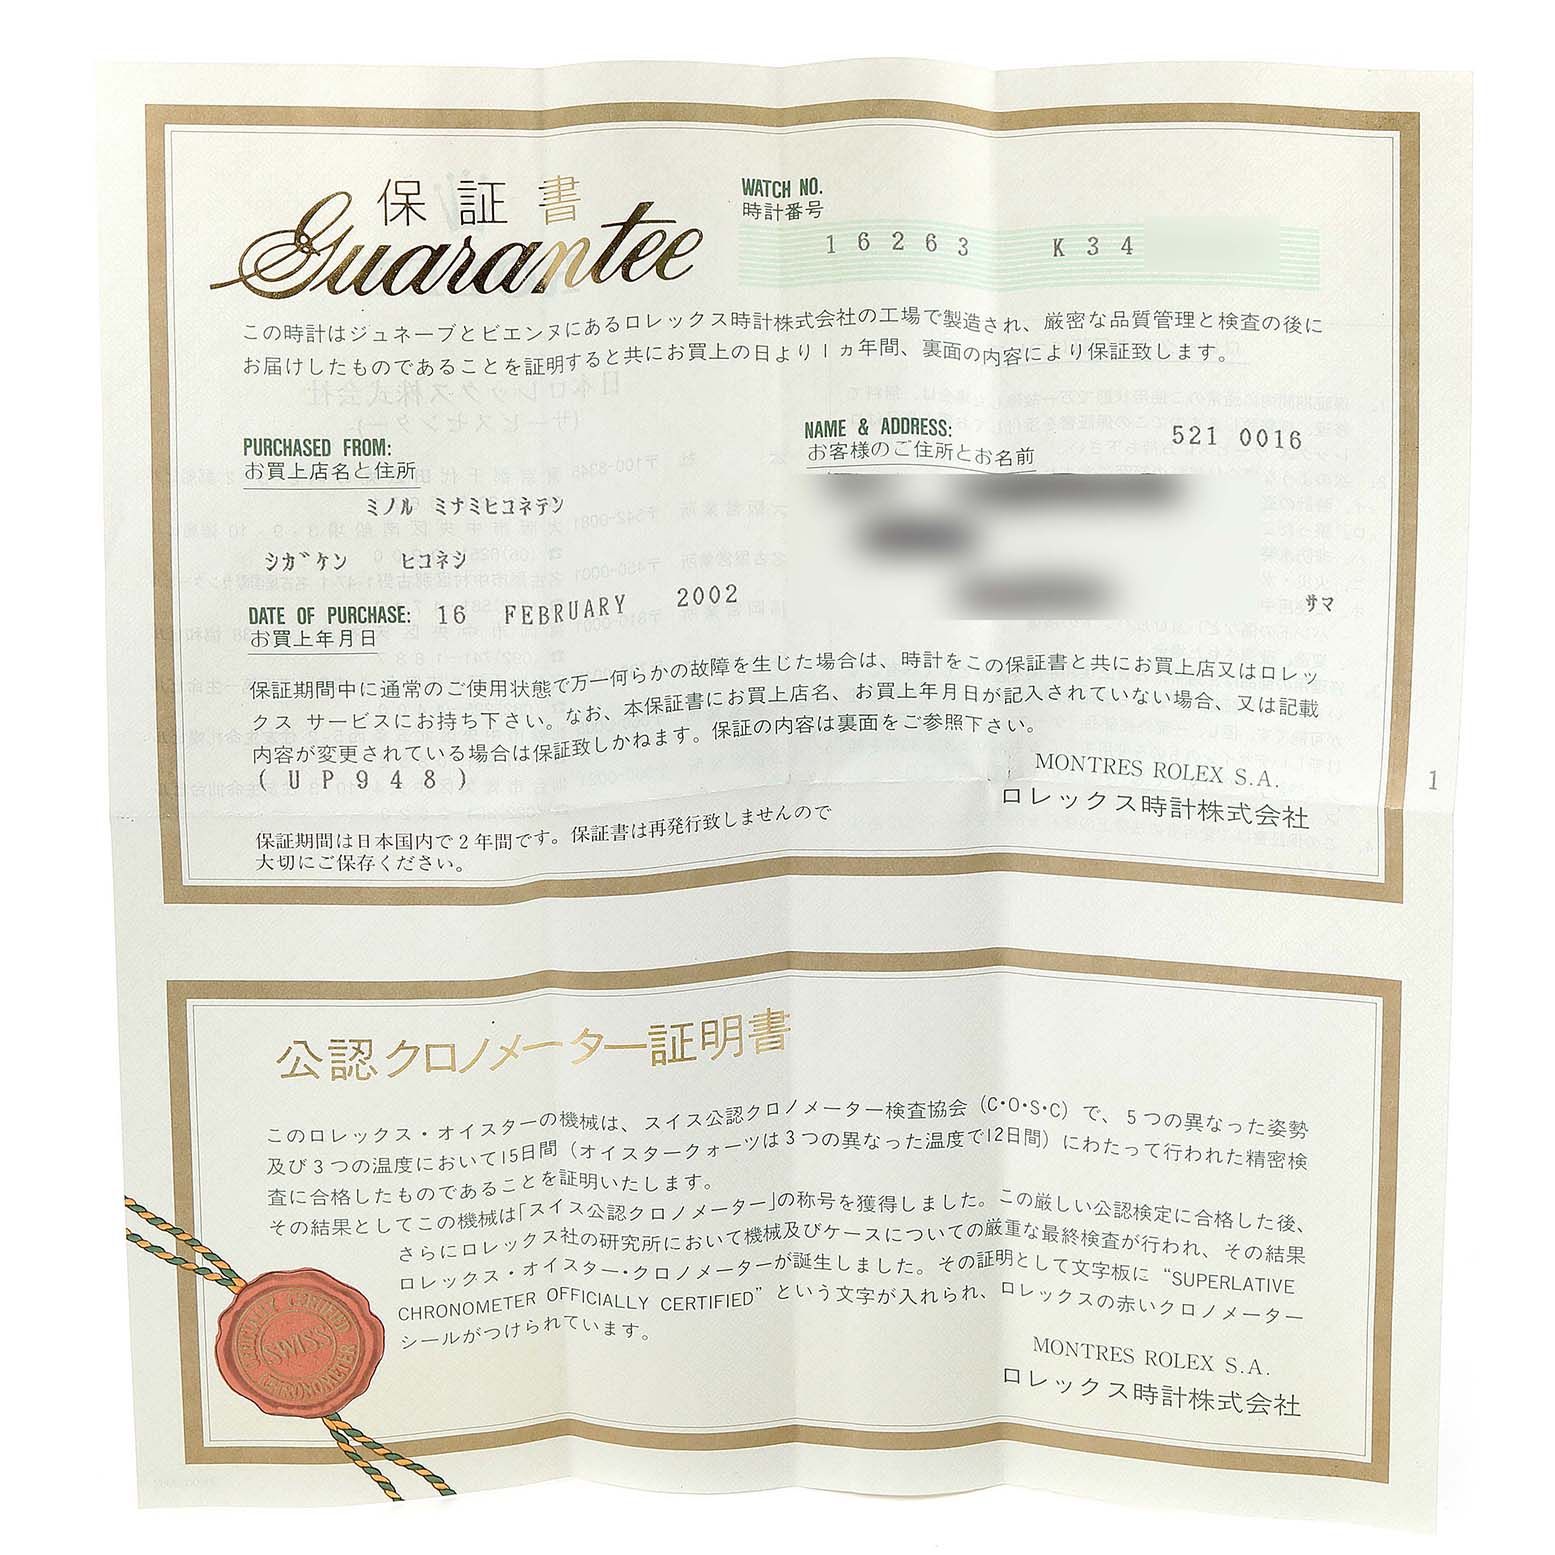 保証書
Guarantee
WATCH NO.
時計番号
16263 K34
この時計はジュネーブとビエンヌにあるロレックス時計株式会社の工場で製造され、厳密な品質管理と検査の後に
お届けしたものであることを証明すると共にお買上の日より1ヵ年間、裏面の内容により保証致します。
PURCHASED FROM:
お買上店名と住所
ミノル ミナミヒコネテン
シガケン ヒコネシ
NAME & ADDRESS:
お客様のご住所とお名前
521 0016
サマ
DATE OF PURCHASE: 16 FEBRUARY 2002
お買上年月日
保証期間中に通常のご使用状態で万一何らかの故障を生じた場合は、時計をこの保証書と共にお買上店又はロレッ
クス サービスにお持ち下さい。なお、本保証書にお買上店名、お買上年月日が記入されていない場合、又は記載
内容が変更されている場合は保証致しかねます。保証の内容は裏面をご参照下さい。
(UP948)
MONTRES ROLEX S.A.
ロレックス時計株式会社
1
保証期間は日本国内で2年間です。保証書は再発行致しませんので
大切にご保存ください。
公認クロノメーター証明書
このロレックス・オイスターの機械は、スイス公認クロノメーター検査協会(C・O・S・C)で、5つの異なった姿勢
及び3つの温度において15日間(オイスタークォーツは3つの異なった温度で12日間)にわたって行われた精密検
査に合格したものであることを証明いたします。
その結果としてこの機械は「スイス公認クロノメーター」の称号を獲得しました。この厳しい公認検定に合格した後、
さらにロレックス社の研究所において機械及びケースについての厳重な最終検査が行われ、その結果
ロレックス・オイスター・クロノメーターが誕生しました。その証明として文字板に“SUPERLATIVE
CHRONOMETER OFFICIALLY CERTIFIED”という文字が入れられ、ロレックスの赤いクロノメーター
シールがつけられています。
MONTRES ROLEX S.A.
ロレックス時計株式会社
OFFICIALLY CERTIFIED
SWISS
CHRONOMETER